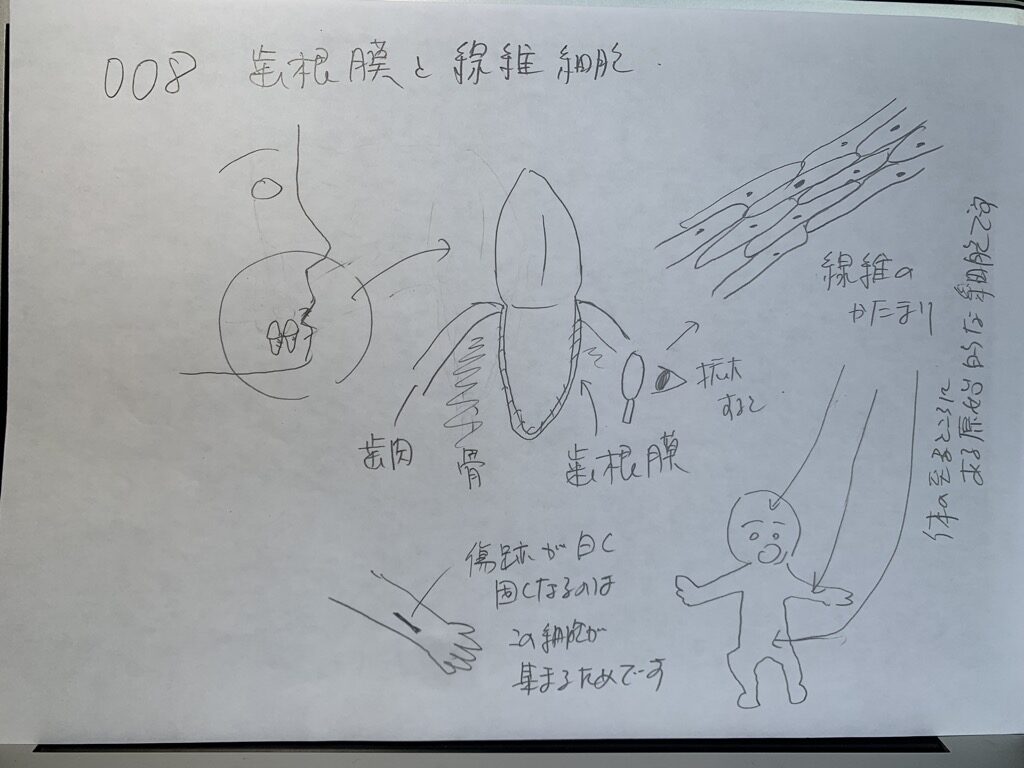 008 歯根膜と線維細胞.
線維の
かたまり
拡大
すると
歯肉
骨
歯根膜
体の至るところに
ある原始的な細胞です
傷跡が白く
固くなるのは
この細胞が
集まるためです